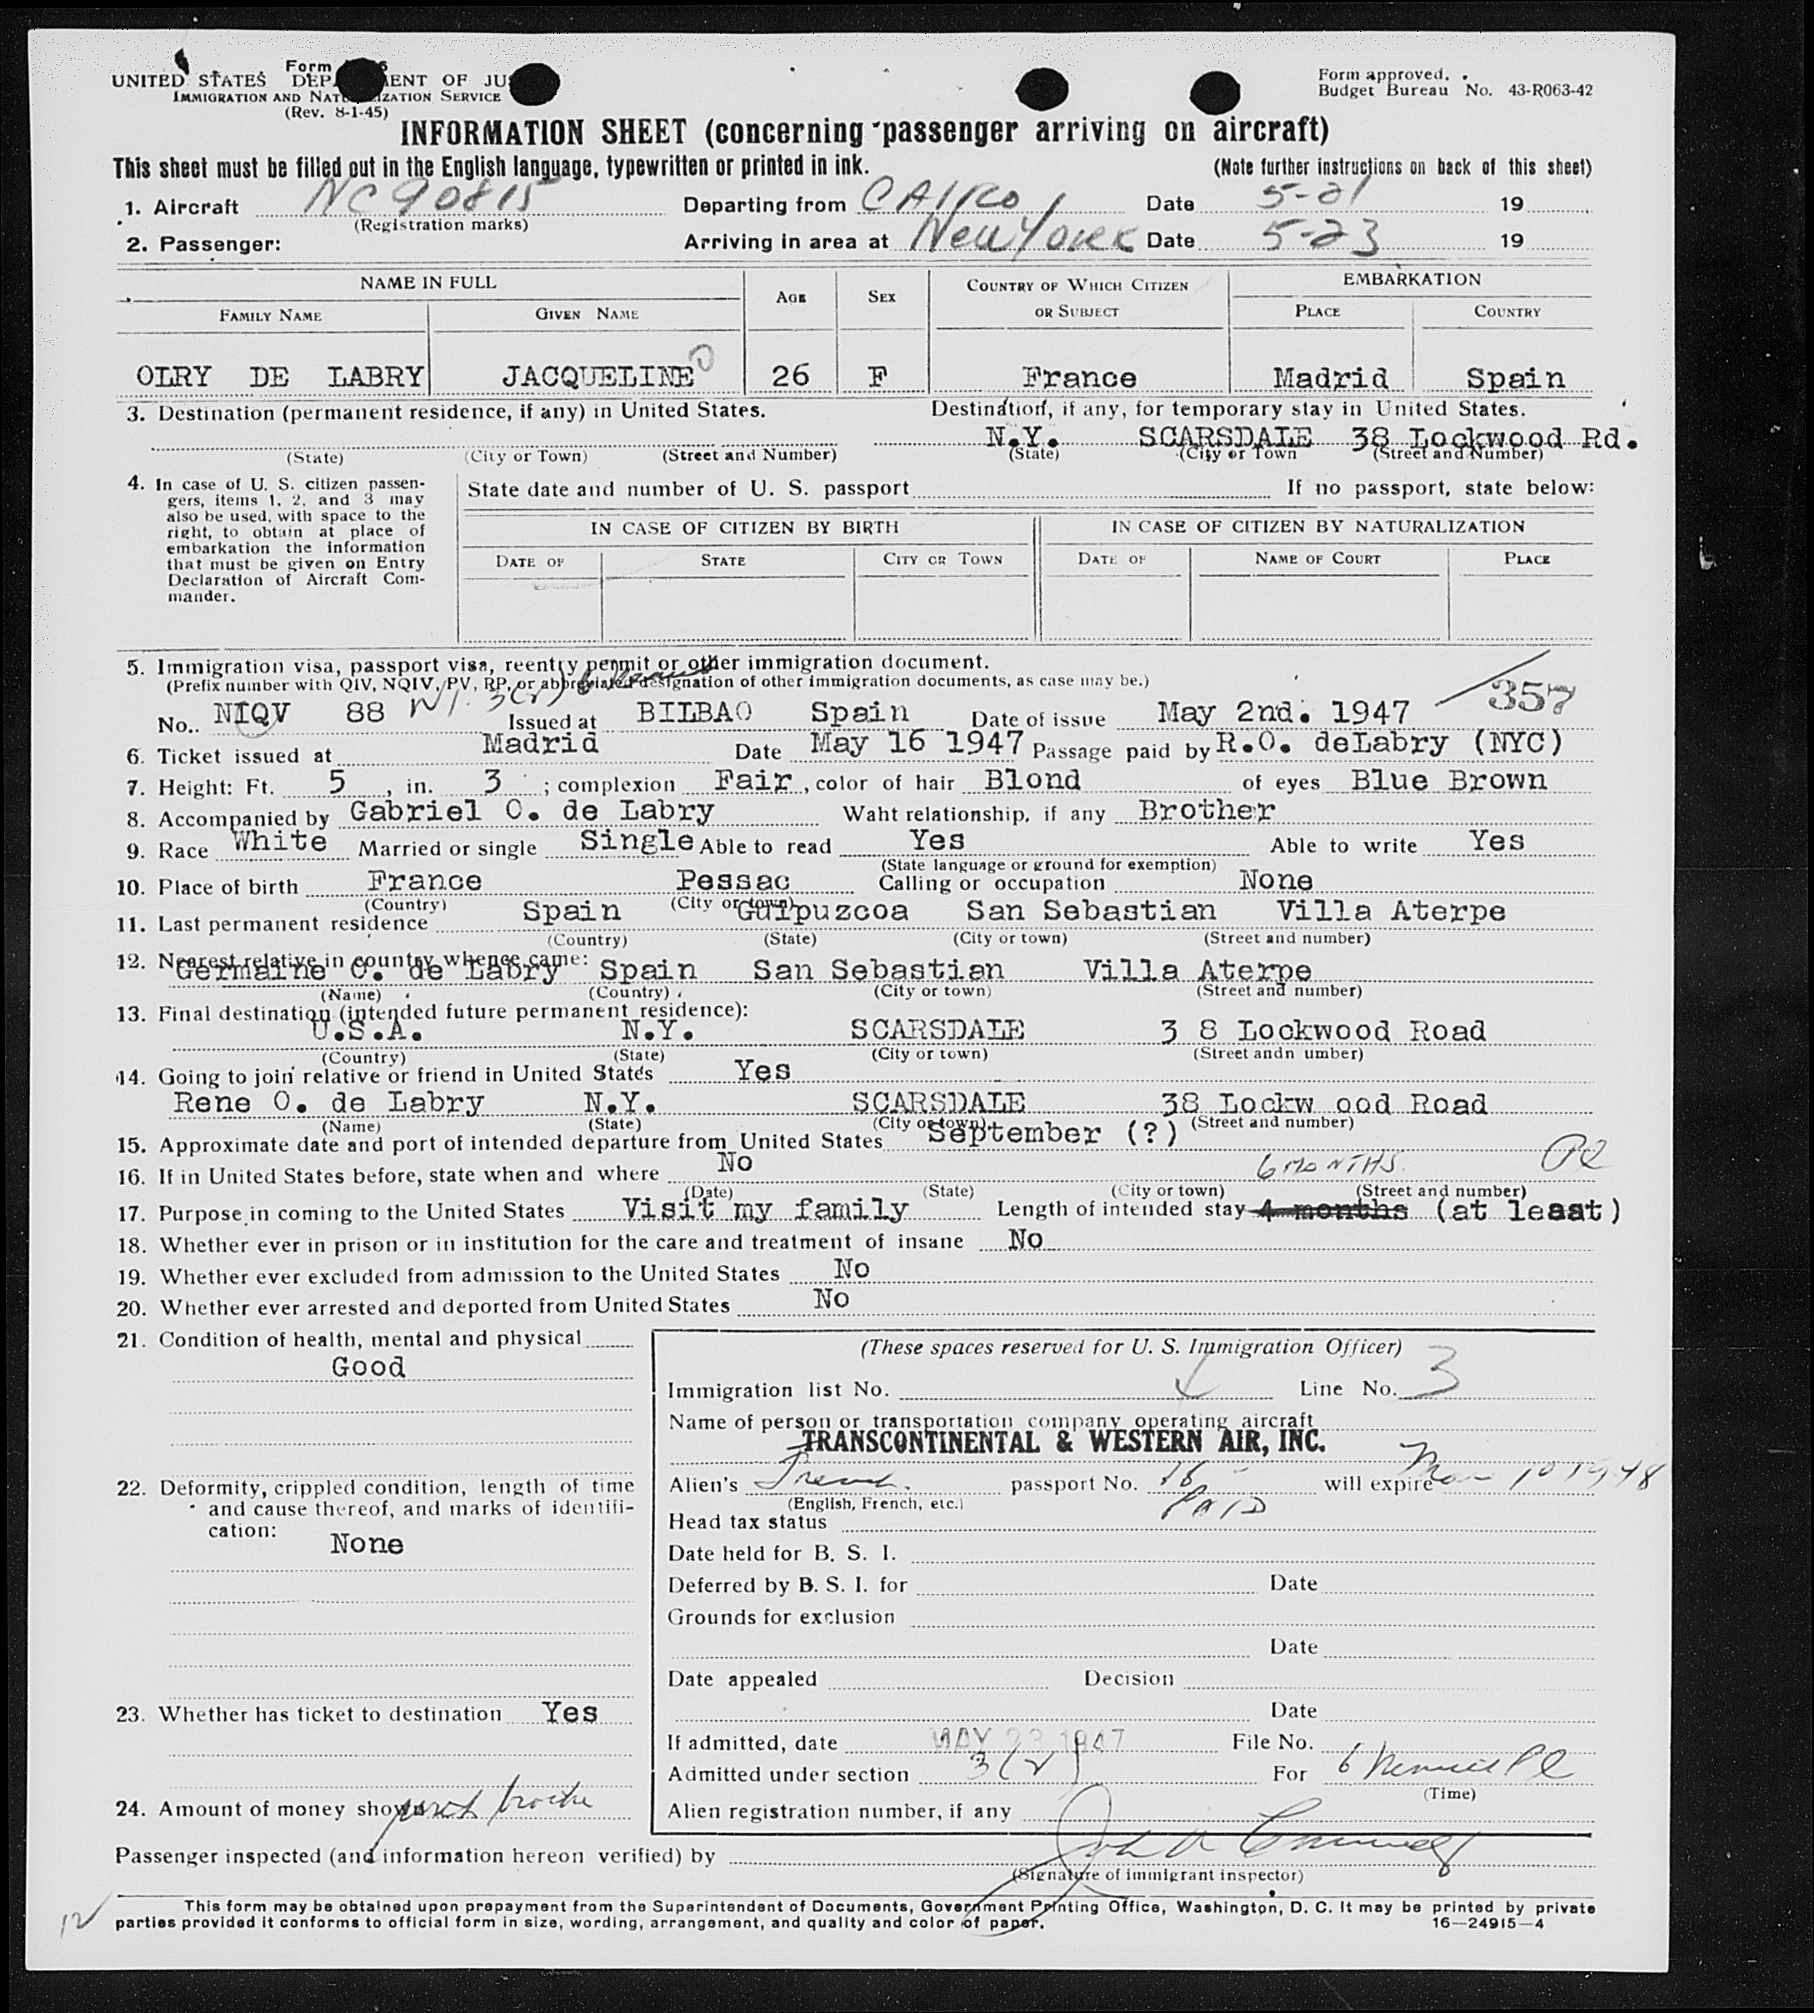 Form
UNITED STATES DEP ENT OF JUS
IMMIGRATION AND NATURALIZATION SERVICE
(Rev. 8-1-45)
Form approved.
Budget Bureau No. 43-R063-42
INFORMATION SHEET (concerning passenger arriving on aircraft)
This sheet must be filled out in the English language, typewritten or printed in ink. (Note further instructions on back of this sheet)
1. Aircraft NC90815 Departing from CAIRO Date 5-21 19
(Registration marks)
2. Passenger: Arriving in area at New York Date 5-23 19
NAME IN FULL AGE SEX COUNTRY OF WHICH CITIZEN OR SUBJECT EMBARKATION
FAMILY NAME GIVEN NAME PLACE COUNTRY
OLRY DE LABRY JACQUELINE O 26 F France Madrid Spain
3. Destination (permanent residence, if any) in United States. Destination, if any, for temporary stay in United States.
N.Y. SCARSDALE 38 Lockwood Rd.
(State) (City or Town) (Street and Number) (State) (City or Town (Street and Number)
4. In case of U. S. citizen passen-
gers, items 1, 2, and 3 may
also be used, with space to the
right, to obtain at place of
embarkation the information
that must be given on Entry
Declaration of Aircraft Com-
mander.
State date and number of U. S. passport If no passport, state below:
IN CASE OF CITIZEN BY BIRTH IN CASE OF CITIZEN BY NATURALIZATION
DATE OF STATE CITY OR TOWN DATE OF NAME OF COURT PLACE
5. Immigration visa, passport visa, reentry permit or other immigration document.
(Prefix number with QIV, NQIV, PV, RP, or abbreviated designation of other immigration documents, as case may be.)
357
No.. NIQV 88 3(2) Issued at BILBAO Spain Date of issue May 2nd. 1947
6. Ticket issued at Madrid Date May 16 1947 Passage paid by R.O. deLabry (NYC)
7. Height: Ft. 5, in. 3; complexion Fair, color of hair Blond of eyes Blue Brown
8. Accompanied by Gabriel O. de Labry Waht relationship, if any Brother
9. Race White Married or single Single Able to read Yes Able to write Yes
(State language or ground for exemption)
10. Place of birth France Pessac Calling or occupation None
(Country) (City or town)
11. Last permanent residence Spain Guipuzcoa San Sebastian Villa Aterpe
(Country) (State) (City or town) (Street and number)
12. Nearest relative in country whence came:
Germaine O. de Labry Spain San Sebastian Villa Aterpe
(Name) (Country) (City or town) (Street and number)
13. Final destination (intended future permanent residence):
U.S.A. N.Y. SCARSDALE 3 8 Lockwood Road
(Country) (State) (City or town) (Street andn umber)
14. Going to join relative or friend in United States Yes
Rene O. de Labry N.Y. SCARSDALE 38 Lockw ood Road
(Name) (State) (City or town) (Street and number)
15. Approximate date and port of intended departure from United States September (?)
16. If in United States before, state when and where No
6 MONTHS.
(Date) (State) (City or town) (Street and number)
17. Purpose in coming to the United States Visit my family Length of intended stay 4 months (at least)
18. Whether ever in prison or in institution for the care and treatment of insane No
19. Whether ever excluded from admission to the United States No
20. Whether ever arrested and deported from United States No
21. Condition of health, mental and physical
Good
22. Deformity, crippled condition, length of time
and cause thereof, and marks of identifi-
cation:
None
23. Whether has ticket to destination Yes
24. Amount of money shown
(These spaces reserved for U. S. Immigration Officer)
Immigration list No. Line No. 3
Name of person or transportation company operating aircraft
TRANSCONTINENTAL & WESTERN AIR, INC.
Alien's French passport No. 18 will expire Mar 10 1948
(English, French, etc.)
Head tax status PAID
Date held for B. S. I.
Deferred by B. S. I. for Date
Grounds for exclusion
Date
Date appealed Decision
Date
If admitted, date MAY 23 1947 File No.
Admitted under section 3(2) For 6
(Time)
Alien registration number, if any
Passenger inspected (and information hereon verified) by
(Signature of immigrant inspector)
This form may be obtained upon prepayment from the Superintendent of Documents, Government Printing Office, Washington, D. C. It may be printed by private
parties provided it conforms to official form in size, wording, arrangement, and quality and color of paper. 16—24915-4
12